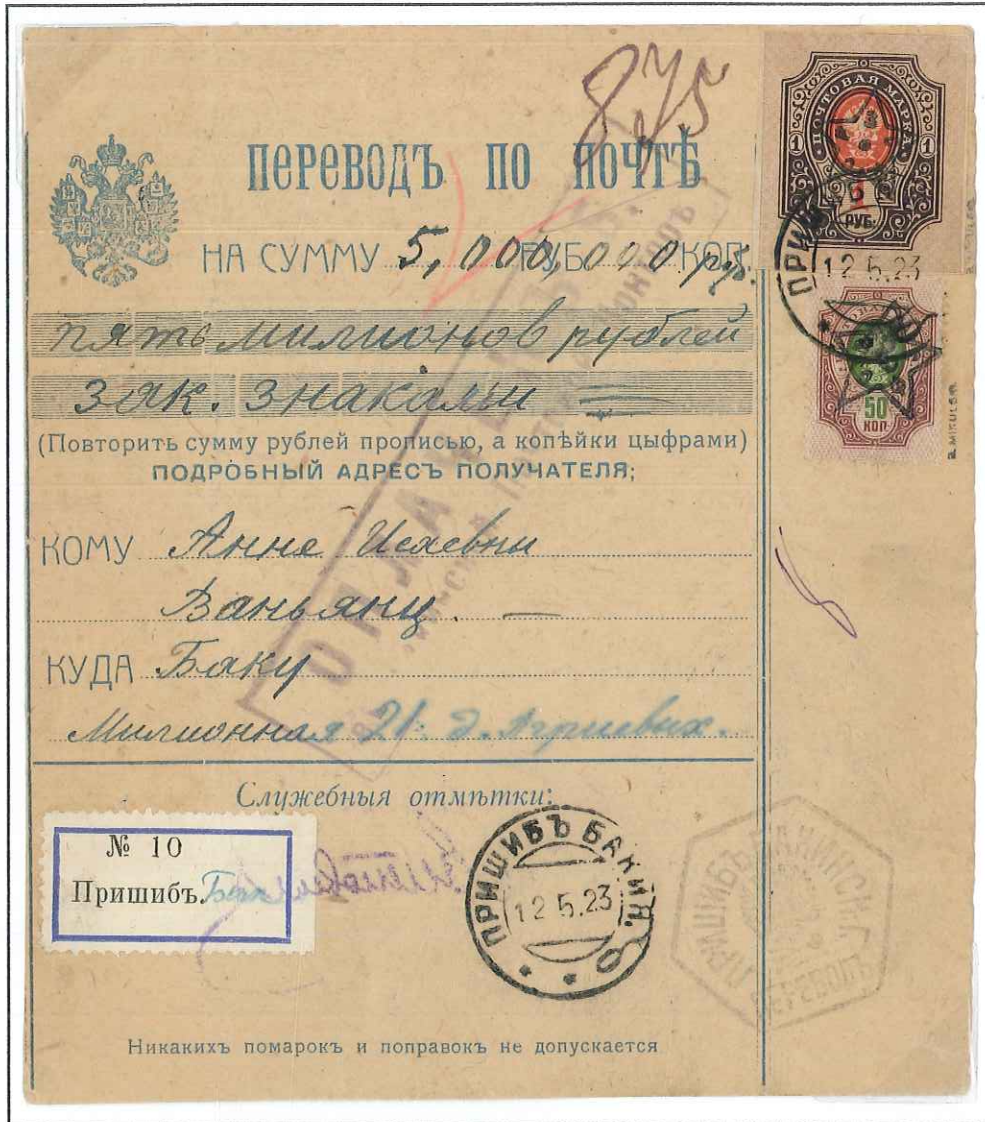 8,75
ПЕРЕВОДЪ ПО ПОЧТѢ
НА СУММУ 5,000,000 РУБ. КОП. руб.
пять милионов рублей
зак. знаками
(Повторить сумму рублей прописью, а копѣйки цыфрами)
ПОДРОБНЫЙ АДРЕСЪ ПОЛУЧАТЕЛЯ;
КОМУ Анне
Ваньянц.
КУДА Баку
Милионная 21. д.
Служебныя отмѣтки:
№ 10
Пришибъ. Бак
ПРИШИБЪ БАКИН. О
12 5.23
Никакихъ помарокъ и поправокъ не допускается
ПОЧТОВАЯ МАРКА
1 1
1
РУБ.
12 5.23
50
КОП.
Z. MIKULSKI
ПЕРЕВОДЪ